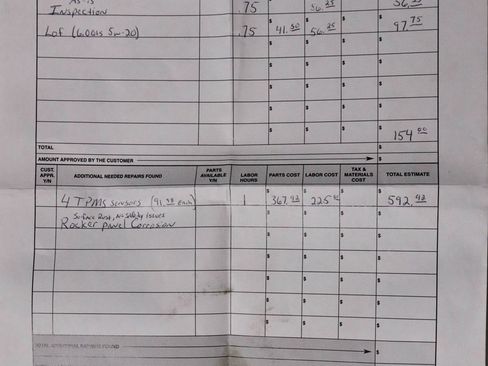 As-is
Inspection .75 $ 56.25 $ 56.25
Lof (6.0qts 5w-20) .75 $ 41.50 $ 56.25 $ $ 97.75
$ 154.00
TOTAL $
AMOUNT APPROVED BY THE CUSTOMER $
CUST. APPR. Y/N ADDITIONAL NEEDED REPAIRS FOUND PARTS AVAILABLE Y/N LABOR HOURS PARTS COST LABOR COST TAX & MATERIALS COST TOTAL ESTIMATE
4 TPMS sensors (91.98 each) 1 $ 367.92 $ 225 $ $ 592.92
Surface Rust, No Safety Issues
Rocker panel Corrosion
TOTAL ADDITIONAL REPAIRS FOUND $